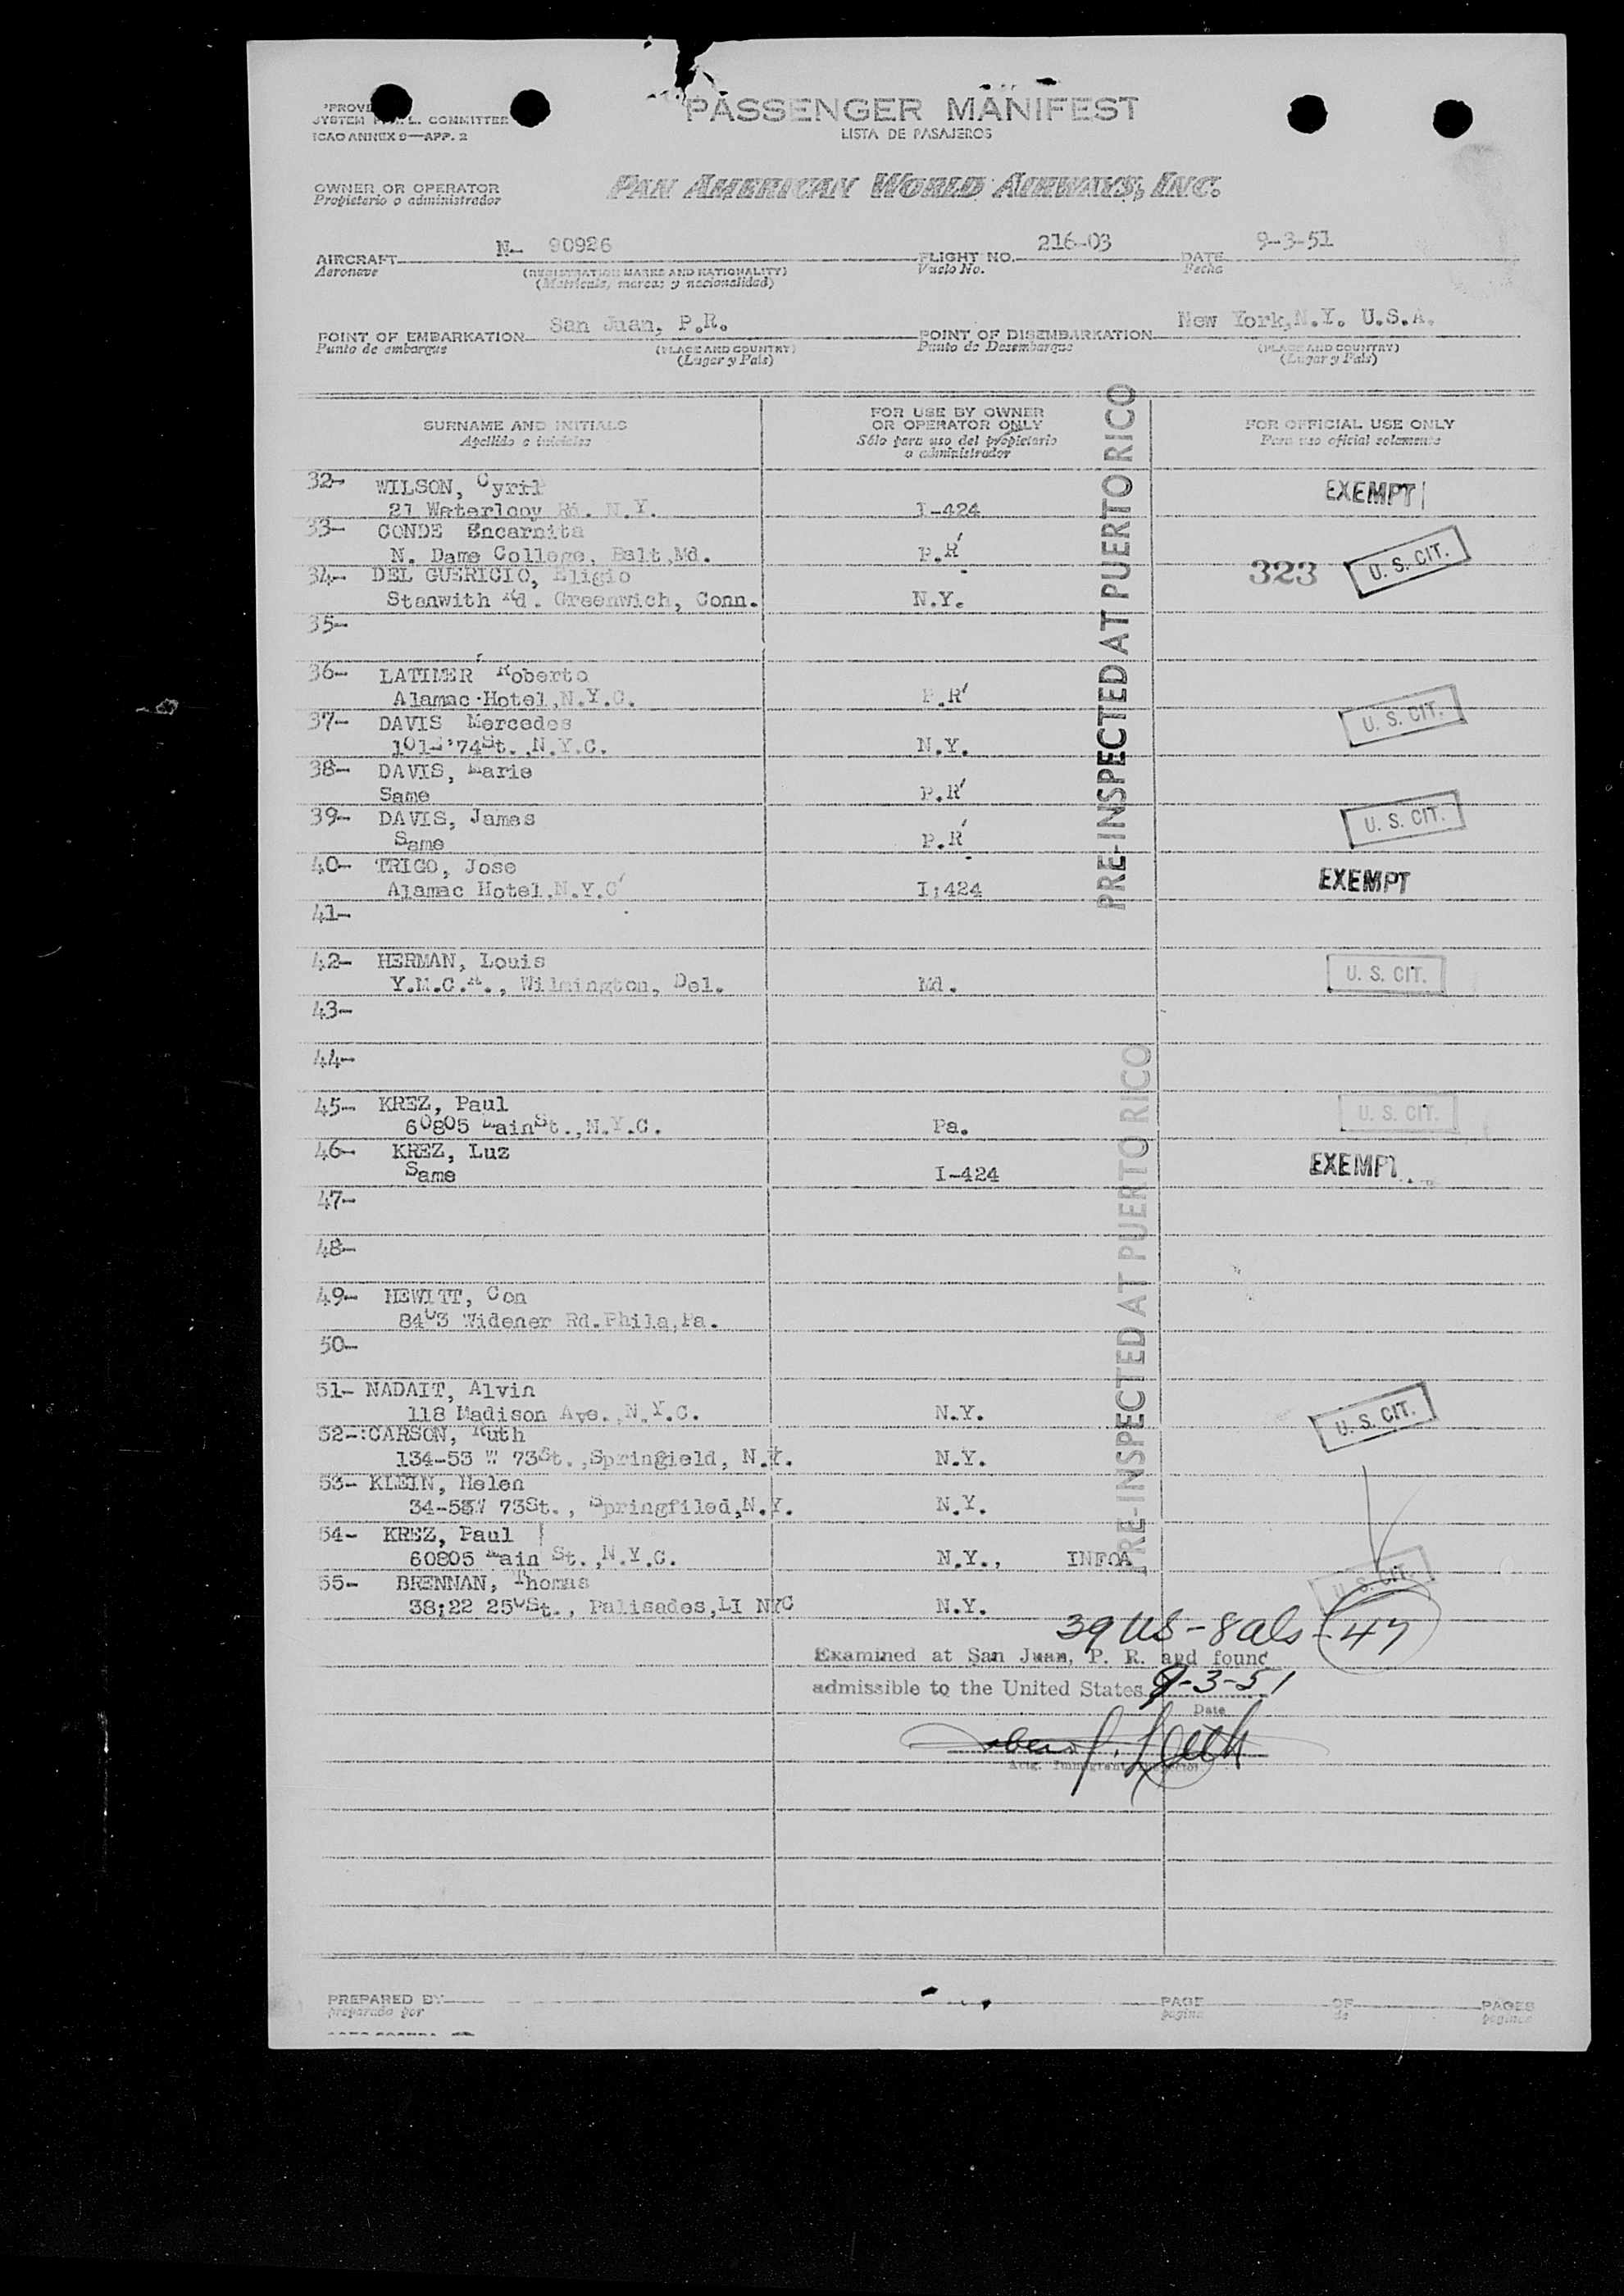 PASSENGER MANIFEST
LISTA DE PASAJEROS
SYSTEM COMMITTEE
ICAO ANNEX 9—APP. 2
OWNER OR OPERATOR
Propietario o administrador
PAN AMERICAN WORLD AIRWAYS, INC.
AIRCRAFT N- 90926 FLIGHT NO. 216-03 DATE 9-3-51
Aeronave (REGISTRATION MARKS AND NATIONALITY) Vuelo No. Fecha
(Matricula, marcas y nacionalidad)
POINT OF EMBARKATION San Juan, P.R. POINT OF DISEMBARKATION New York,N.Y. U.S.A.
Punto de embarque (PLACE AND COUNTRY) Punto de Desembarque (PLACE AND COUNTRY)
(Lugar y País) (Lugar y País)
SURNAME AND INITIALS FOR USE BY OWNER OR OPERATOR ONLY FOR OFFICIAL USE ONLY
Apellido e iniciales Sólo para uso del propietario o administrador Para uso oficial solamente
PRE-INSPECTED AT PUERTO RICO
32- WILSON, Cyril EXEMPT
21 Waterlooy Rd. N.Y. I-424
33- CONDE Encarnita
N. Dame College, Balt,Md. P.R
34- DEL GUERICIO, Eligio 323 U. S. CIT.
Stanwith Rd. Greenwich, Conn. N.Y.
35-
36- LATIMER Roberto
Alamac Hotel,N.Y.C. P.R U. S. CIT.
37- DAVIS Mercedes
74St. N.Y.C. N.Y.
38- DAVIS, Marie
Same P.R
39- DAVIS, James U. S. CIT.
Same P.R
40- TRIGO, Jose EXEMPT
Alamac Hotel,N.Y.C I;424
41-
42- HERMAN, Louis U. S. CIT.
Y.M.C.A., Wilmington, Del. Md.
43-
44-
PRE-INSPECTED AT PUERTO RICO
45- KREZ, Paul U. S. CIT.
60805 MainSt.,N.Y.C. Pa.
46- KREZ, Luz EXEMPT
Same I-424
47-
48-
49- HEWITT, Con
8403 Widener Rd.Phila,Pa.
50-
51- NADAIT, Alvin U. S. CIT.
118 Madison Ave.,N.Y.C. N.Y.
52-:CARSON, Ruth
134-53 W 73St.,Springfield, N.Y. N.Y.
53- KLEIN, Helen
34-53W 73St., Springfiled,N.Y. N.Y.
54- KREZ, Paul
60805 Main St.,N.Y.C. N.Y., INFOA
55- BRENNAN, Thomas U. S. CIT.
38;22 250St., Palisades,LI NYC N.Y.
39 US - 8 als - 47
Examined at San Juan, P. R. and found
admissible to the United States 9-3-51
Date
Actg. Immigrant Inspector
PREPARED BY PAGE OF PAGES
preparado por pagina de paginas